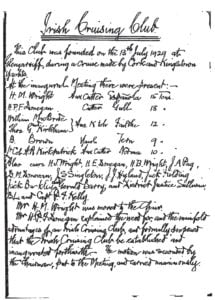 Irish Cruising Club
This Club was founded on the 13th July 1929 at
Glengarriff, during a cruise made by Cork and Kingstown
Yachts.
At the inaugural Meeting there were present:-
H. M. Wright Aux Cutter 15 tons
H. P. F. Donegan Cutter Gull 18 "
William
Thos. Aux Ketch 12 "
B. Brown Yawl 9 "
Col. Kirkpatrick Aux Cutter 10 "
Also were H. Wright, H. E. Donegan, W. D. Wright, J. A.
D. M. Donovan, S. Singleton, J. Hyland, Jack
Gerald Barry, and District Justice Sullivan,
B.L., and Capt. P. J. Kelly.
Mr H. M. Wright was moved to the Chair.
Mr H. P. F. Donegan explained the need for, and the manifold
advantages of an Irish Cruising Club, and formally proposed
that the Irish Cruising Club be established and
inaugurated forthwith. The motion was seconded by
the Chairman, put to the Meeting and carried unanimously.